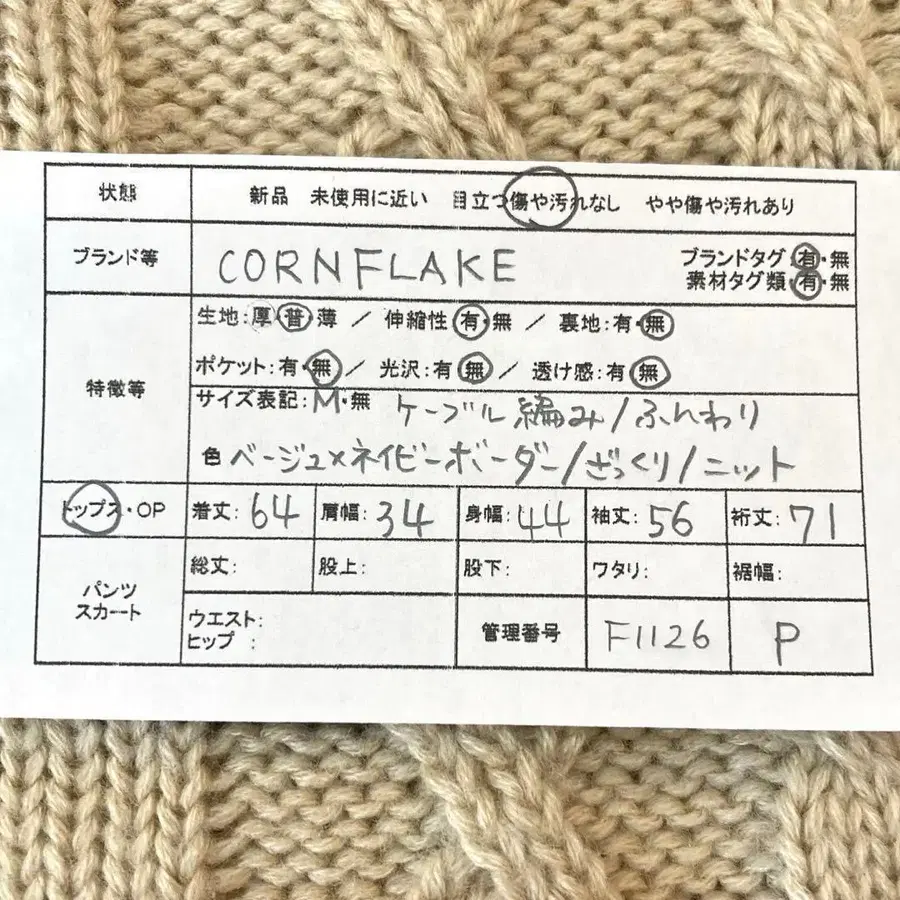 状態 新品 未使用に近い 目立つ傷や汚れなし やや傷や汚れあり
ブランド等 CORNFLAKE ブランドタグ 有・無
素材タグ類:有・無
特徴等 生地:厚・普・薄 / 伸縮性 有・無 / 裏地:有・無
ポケット:有・無 / 光沢:有・無 / 透け感:有・無
サイズ表記:M・無 ケーブル編み/ふんわり
色 ベージュ×ネイビーボーダー/ざっくり/ニット
トップス・OP 着丈:64 肩幅:34 身幅:44 袖丈:56 裄丈:71
パンツ
スカート
総丈: 股上: 股下: ワタリ: 裾幅:
ウエスト:
ヒップ :
管理番号 F1126 P